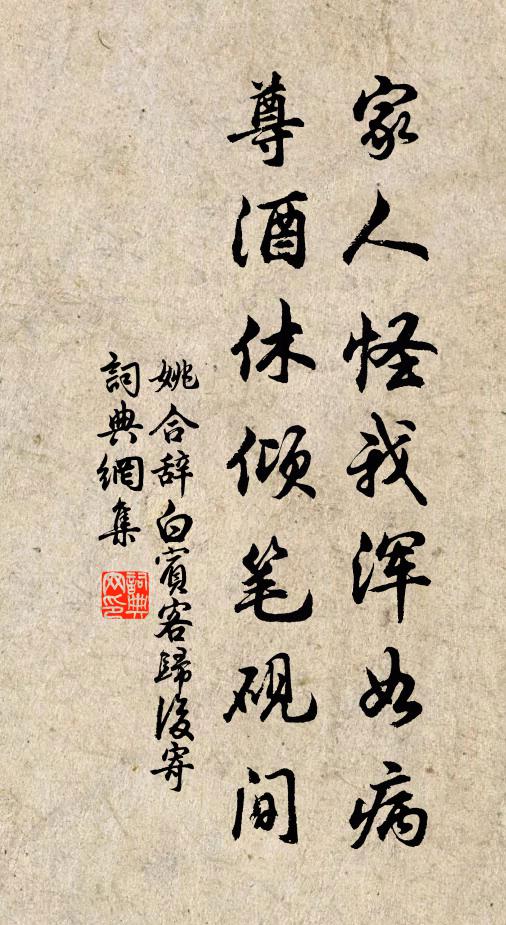 家人怪我浑如病
尊酒休倾笔砚间
姚合辞白宾客歸後寄
詞典網集
詞典网印